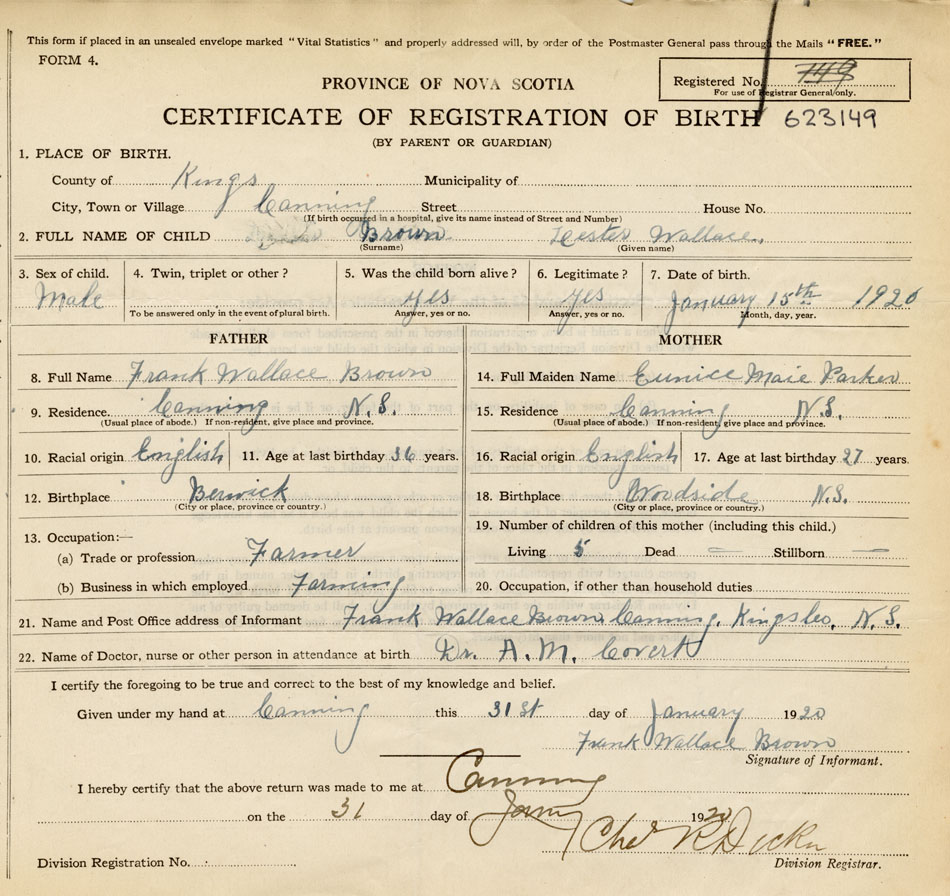 This form if placed in an unsealed envelope marked "Vital Statistics" and properly addressed will, by order of the Postmaster General pass through the Mails "FREE."
FORM 4.
PROVINCE OF NOVA SCOTIA
Registered No. 149
For use of Registrar General only.
CERTIFICATE OF REGISTRATION OF BIRTH 623149
(BY PARENT OR GUARDIAN)
1. PLACE OF BIRTH.
County of Kings Municipality of
City, Town or Village Canning Street House No.
(If birth occurred in a hospital, give its name instead of Street and Number)
2. FULL NAME OF CHILD Brown Lester Wallace
(Surname) (Given name)
3. Sex of child. 4. Twin, triplet or other? 5. Was the child born alive? 6. Legitimate? 7. Date of birth.
Male yes yes January 15th 1920
To be answered only in the event of plural birth. Answer, yes or no. Answer, yes or no. Month, day, year.
FATHER MOTHER
8. Full Name Frank Wallace Brown 14. Full Maiden Name Eunice Maie Parker
9. Residence. Canning N.S. 15. Residence Canning N.S.
(Usual place of abode.) If non-resident, give place and province. (Usual place of abode.) If non-resident, give place and province.
10. Racial origin English 11. Age at last birthday 36 years. 16. Racial origin English 17. Age at last birthday 27 years.
12. Birthplace Berwick 18. Birthplace Woodside N.S.
(City or place, province or country.) (City or place, province or country.)
13. Occupation:— 19. Number of children of this mother (including this child.)
(a) Trade or profession Farmer Living 5 Dead — Stillborn —
(b) Business in which employed Farming 20. Occupation, if other than household duties
21. Name and Post Office address of Informant Frank Wallace Brown Canning, Kings Co, N.S.
22. Name of Doctor, nurse or other person in attendance at birth Dr. A. M. Covert
I certify the foregoing to be true and correct to the best of my knowledge and belief.
Given under my hand at Canning this 31st day of January 1920
Frank Wallace Brown
Signature of Informant.
I hereby certify that the above return was made to me at Canning
on the 31 day of 1920
Division Registration No.
Division Registrar.